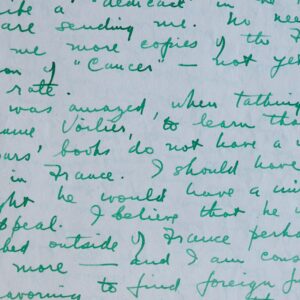 ibe a "dedicace" in ho
are sending me. No nee
me more copies of the F
on of "Cancer" — not yet
rate.
was amazed, when talking
ame Vorlier, to learn tha
ours' books do not have a
in France. I should have
ght he would have a
ppeal. I believe that he
bed outside of France perha
more — and I am cons
avoring to find foreign